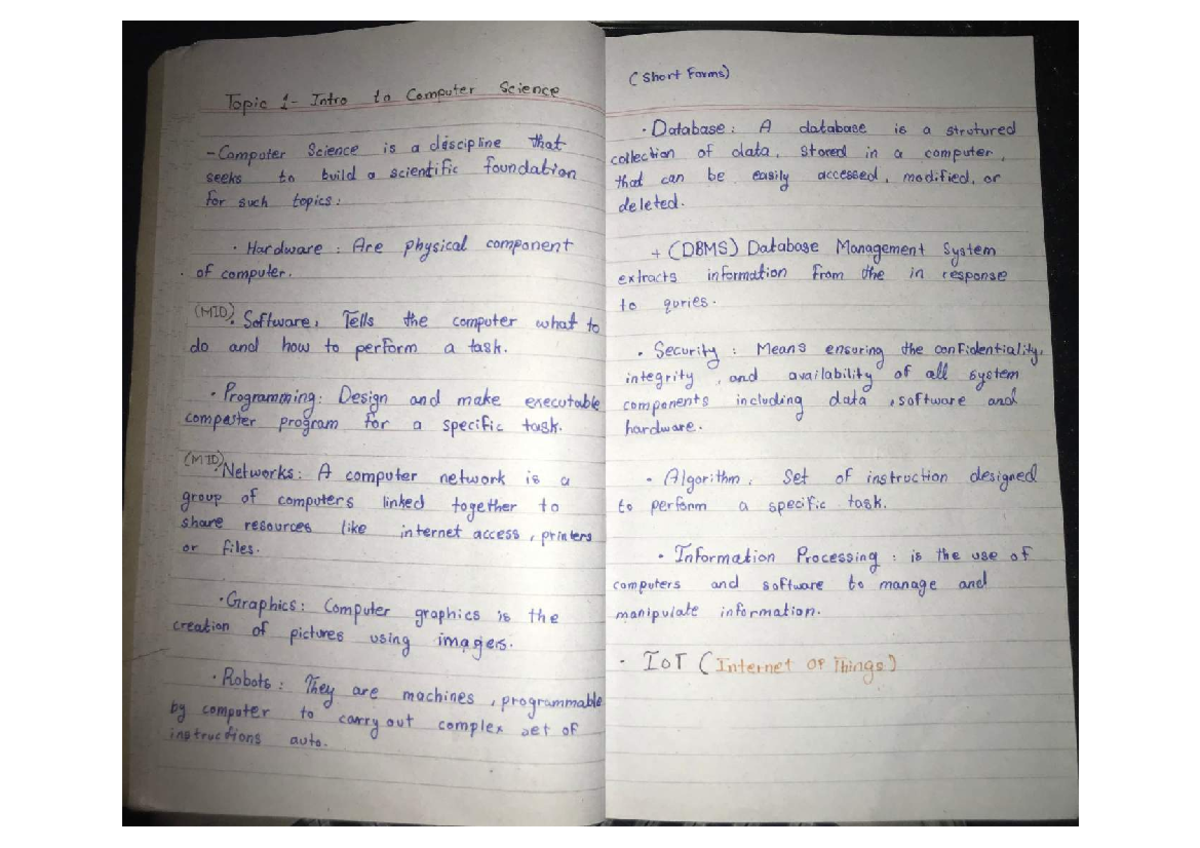 Topic 1- Intro to Computer Science
-Computer Science is a discipline that
seeks to build a scientific foundation
for such topics:
• Hardware : Are physical component
of computer.
(MID)• Software, Tells the computer what to
do and how to perform a task.
• Programming: Design and make executable
computer program for a specific task.
(MID)•Networks: A computer network is a
group of computers linked together to
share resources like internet access, printers
or files.
•Graphics: Computer graphics is the
creation of pictures using imagers.
• Robots: They are machines, programmable
by computer to carry out complex set of
instructions auto.
(Short Forms)
• Database: A database is a strutured
collection of data, stored in a computer,
that can be easily accessed, modified, or
deleted.
+ (DBMS) Database Management System
extracts information from the in response
to quries.
• Security: Means ensuring the confidentiality,
integrity, and availability of all system
components including data, software and
hardware.
• Algorithm, Set of instruction designed
to perform a specific task.
• Information Processing: is the use of
computers and software to manage and
manipulate information.
• IoT (Internet Of Things)